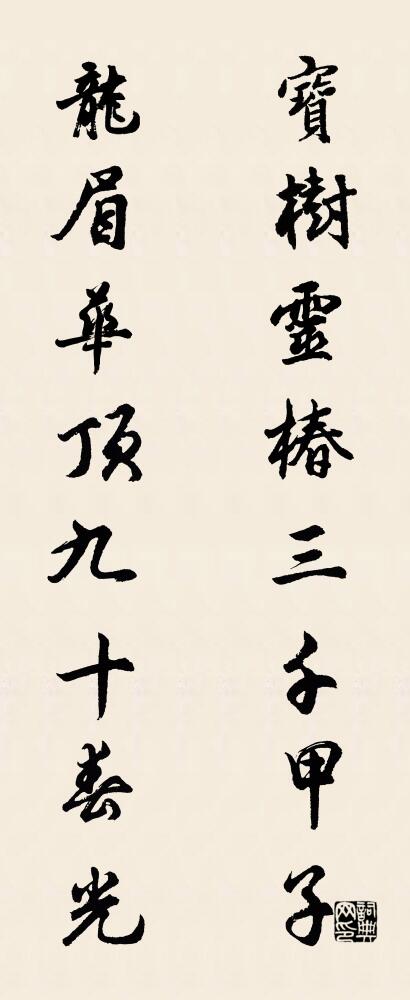 寶樹靈椿三千甲子
龍眉華頂九十春光
詞典網印